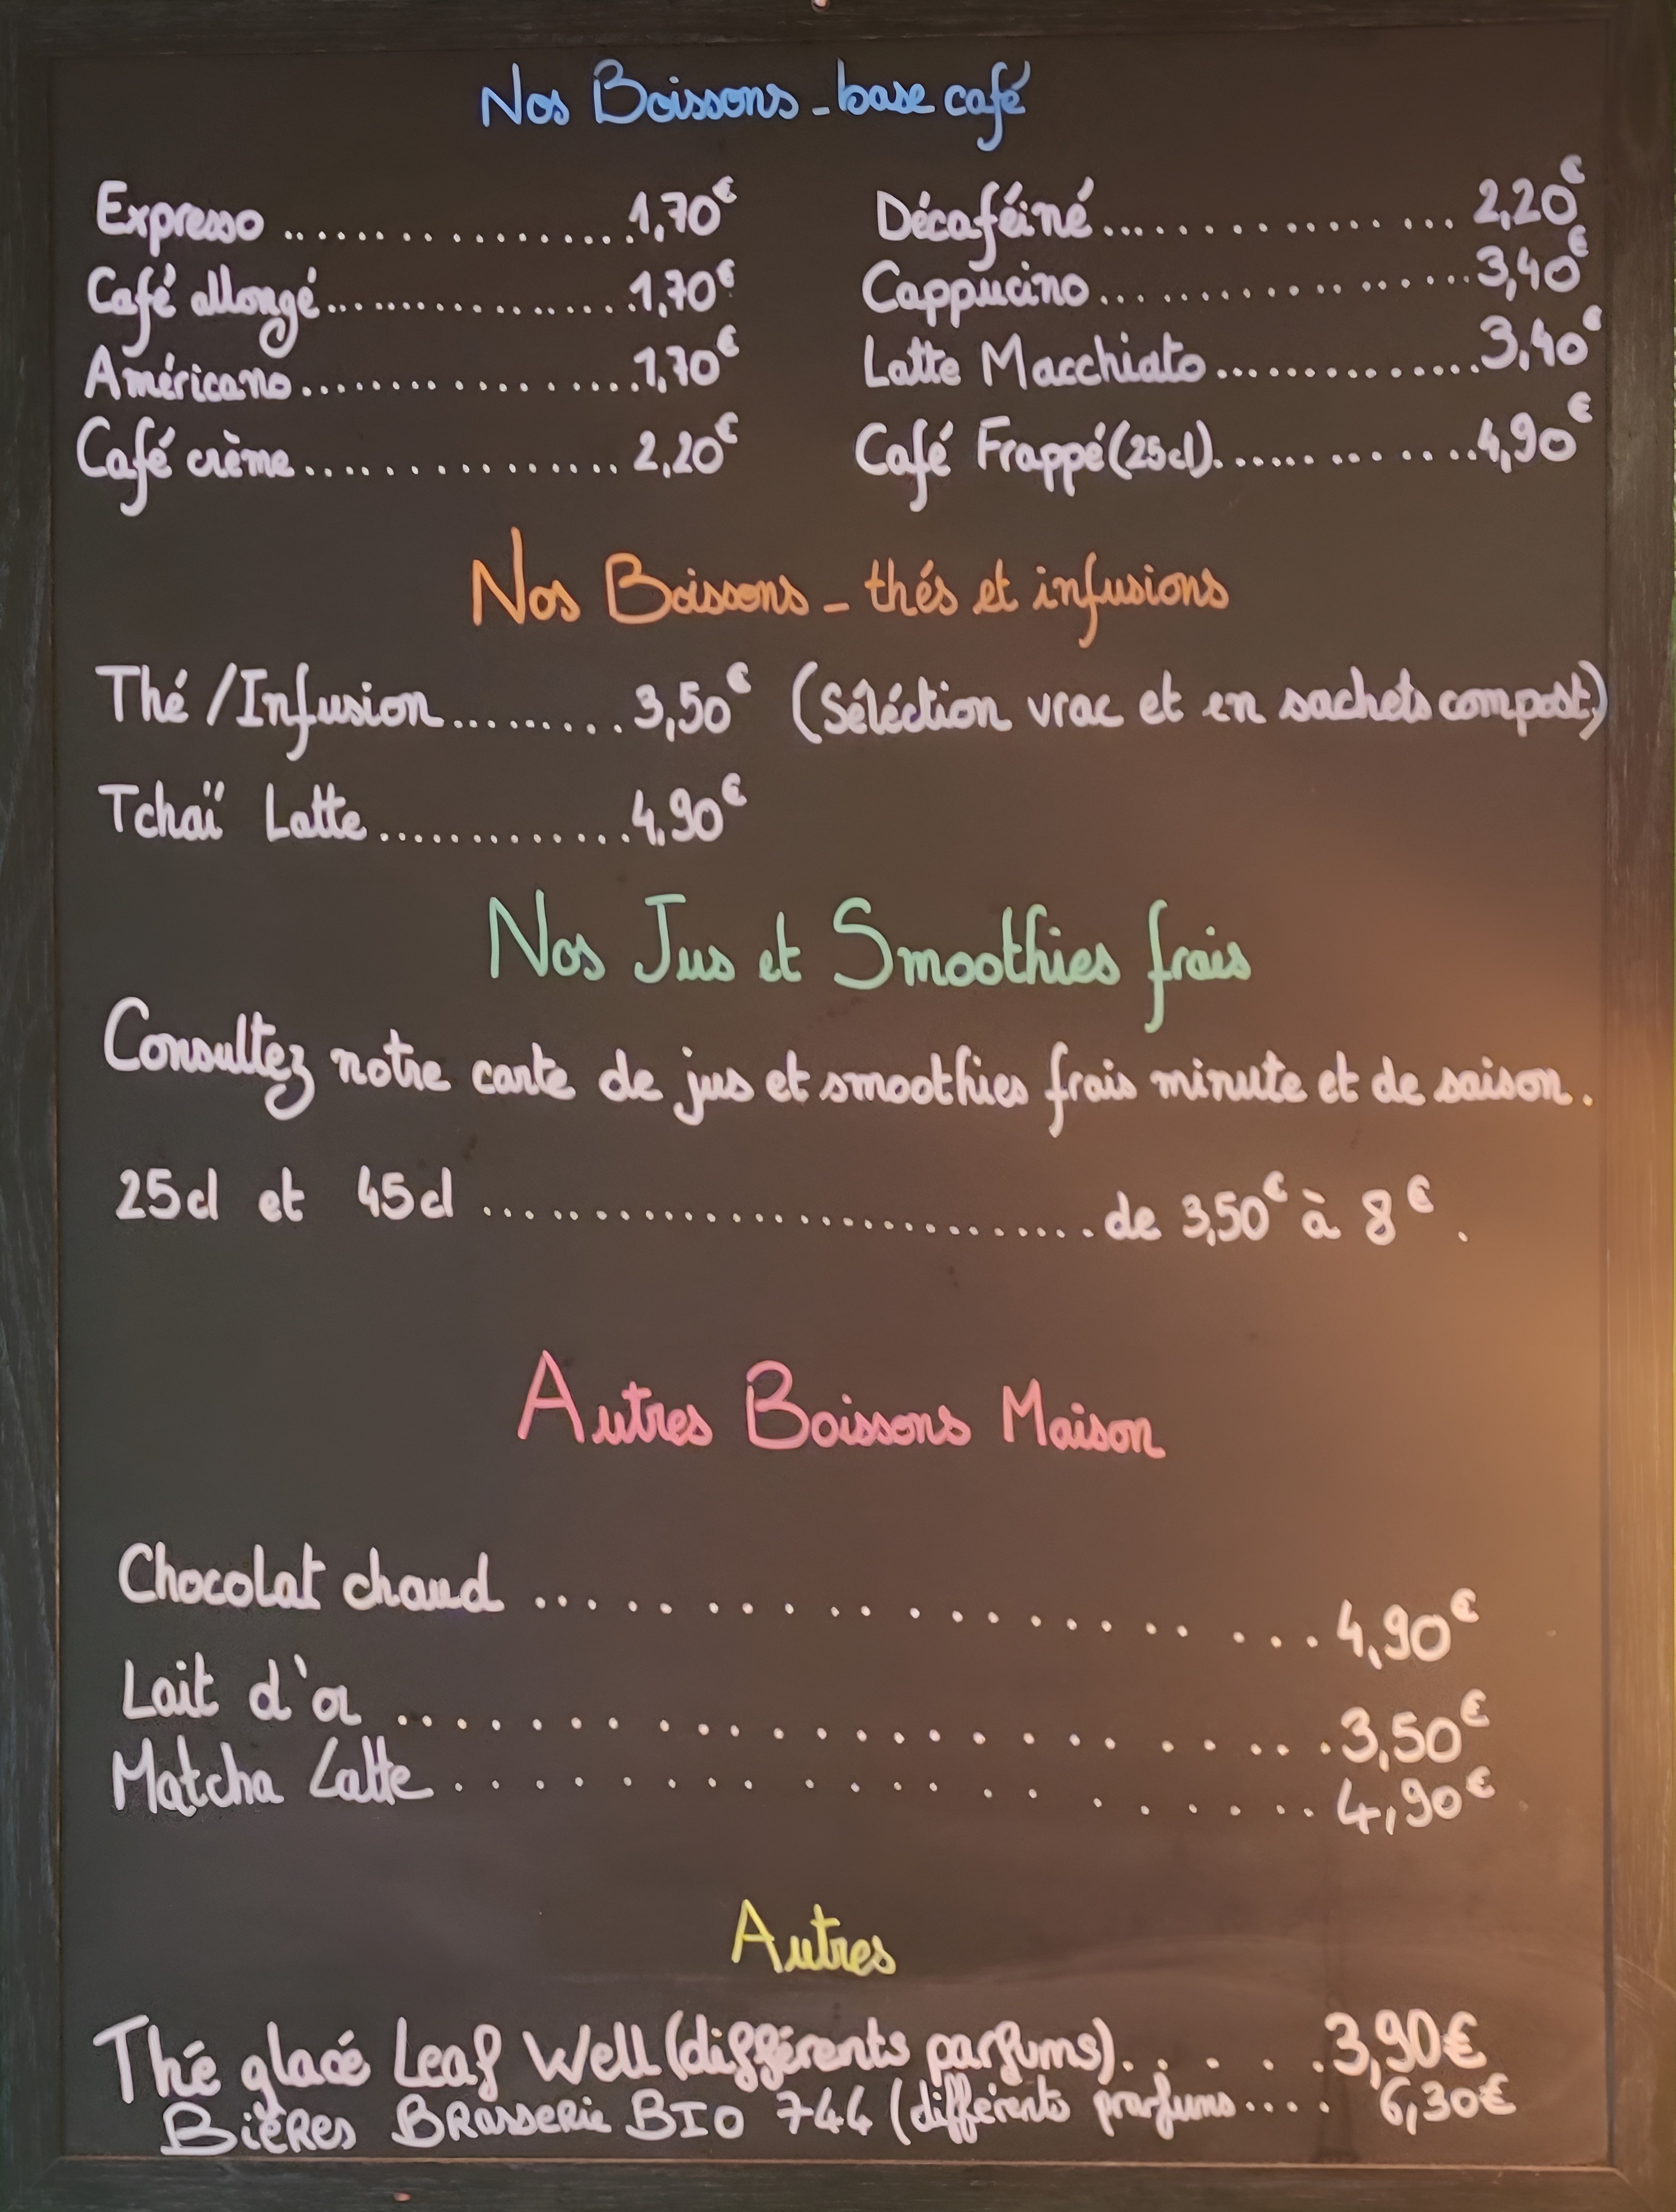 Nos Boissons - base café
Expresso ..................1,70€
Café allongé..................1,70€
Américano..................1,70€
Café crème................2,20€
Décaféiné................2,20€
Cappucino................3,40€
Latte Macchiato..............3,40€
Café Frappé (25cl)..............4,90€
Nos Boissons - thés et infusions
Thé /Infusion.........3,50€ (Séléction vrac et en sachets compost.)
Tchaï Latte.............4,90€
Nos Jus et Smoothies frais
Consultez notre carte de jus et smoothies frais minute et de saison.
25cl et 45cl ..............................de 3,50€ à 8€.
Autres Boissons Maison
Chocolat chaud ....................4,90€
Lait d'or ......................3,50€
Matcha Latte...................4,90€
Autres
Thé glacé Leaf Well (différents parfums)......3,90€
Bières Brasserie BIO 744 (différents parfums.... 6,30€